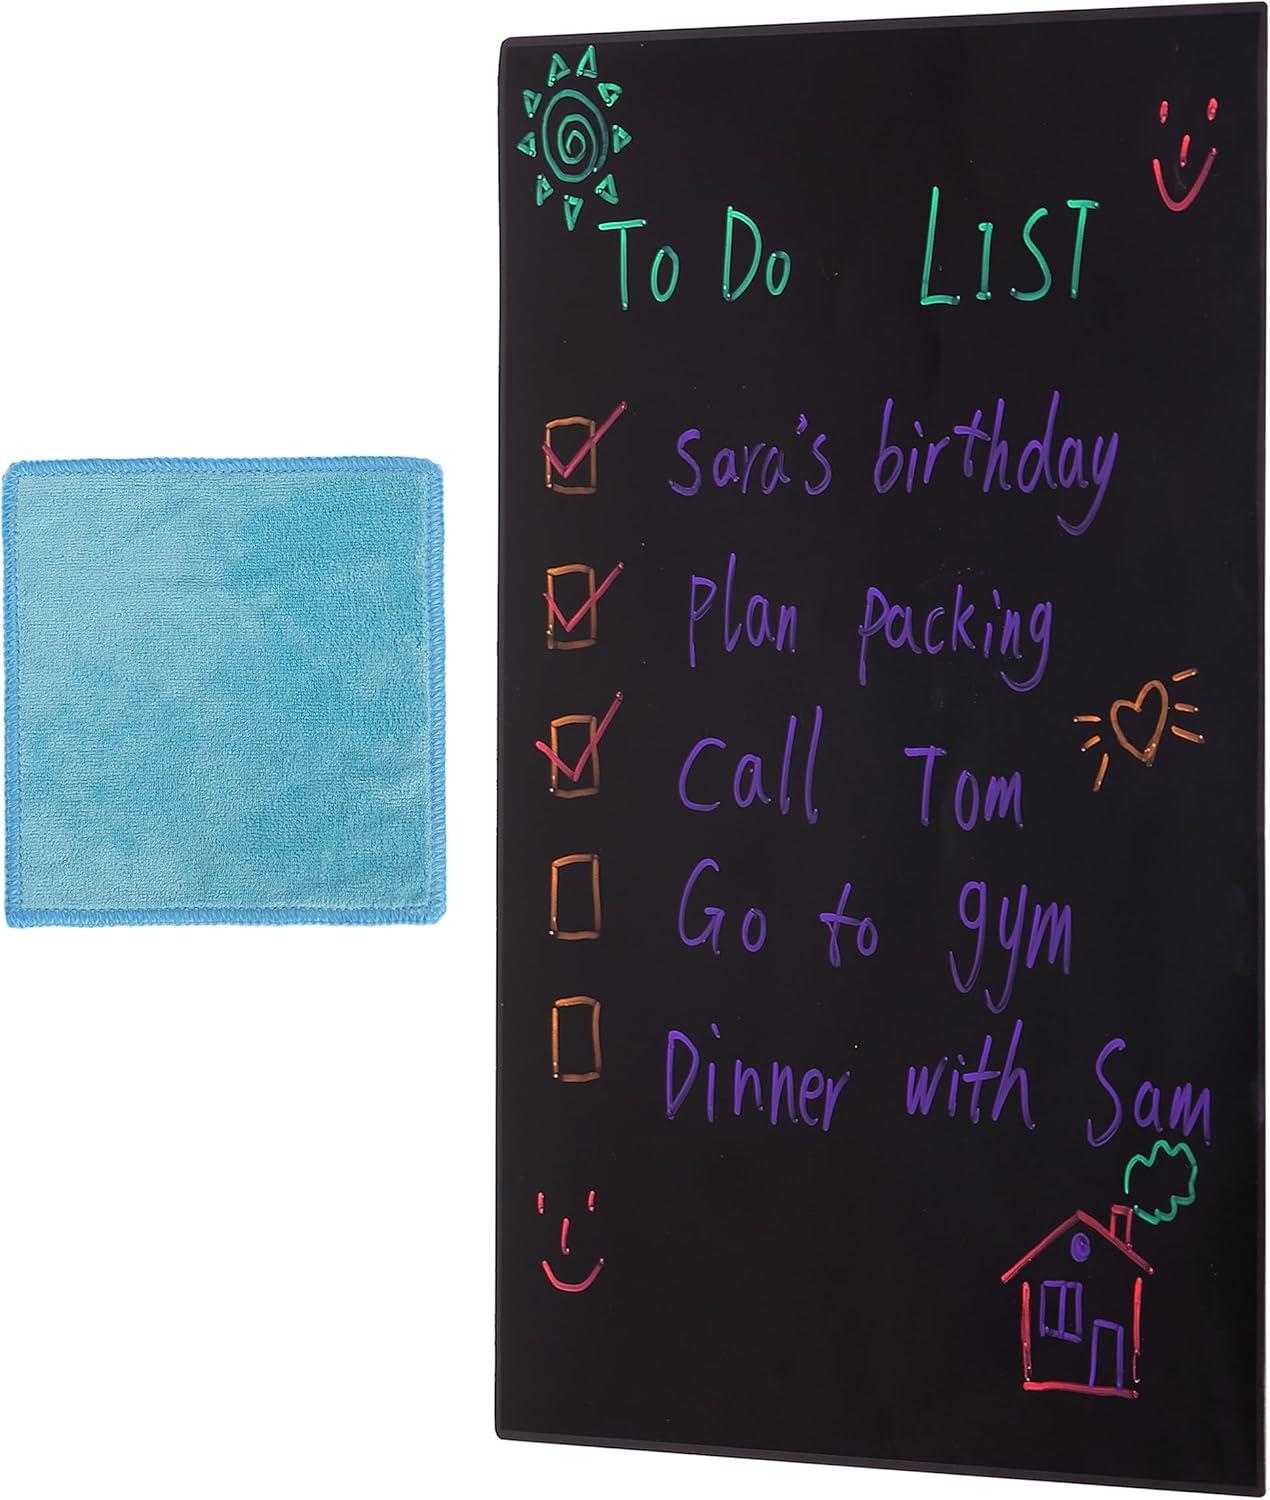 To Do LIST
Sara's birthday
Plan packing
Call Tom
Go to gym
Dinner with Sam